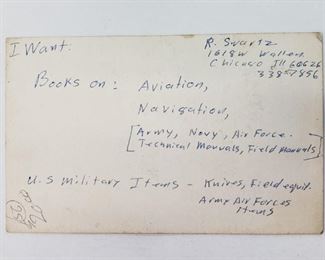 I Want:
R. Swartz
1618 W Wallen
Chicago Ill 60626
338-7856
Books on: Aviation,
Navigation,
[Army, Navy, Air Force.
Technical Manuals, Field Manuals]
U.S Military Items - Knives, Field equip.
Army Air Forces
Items